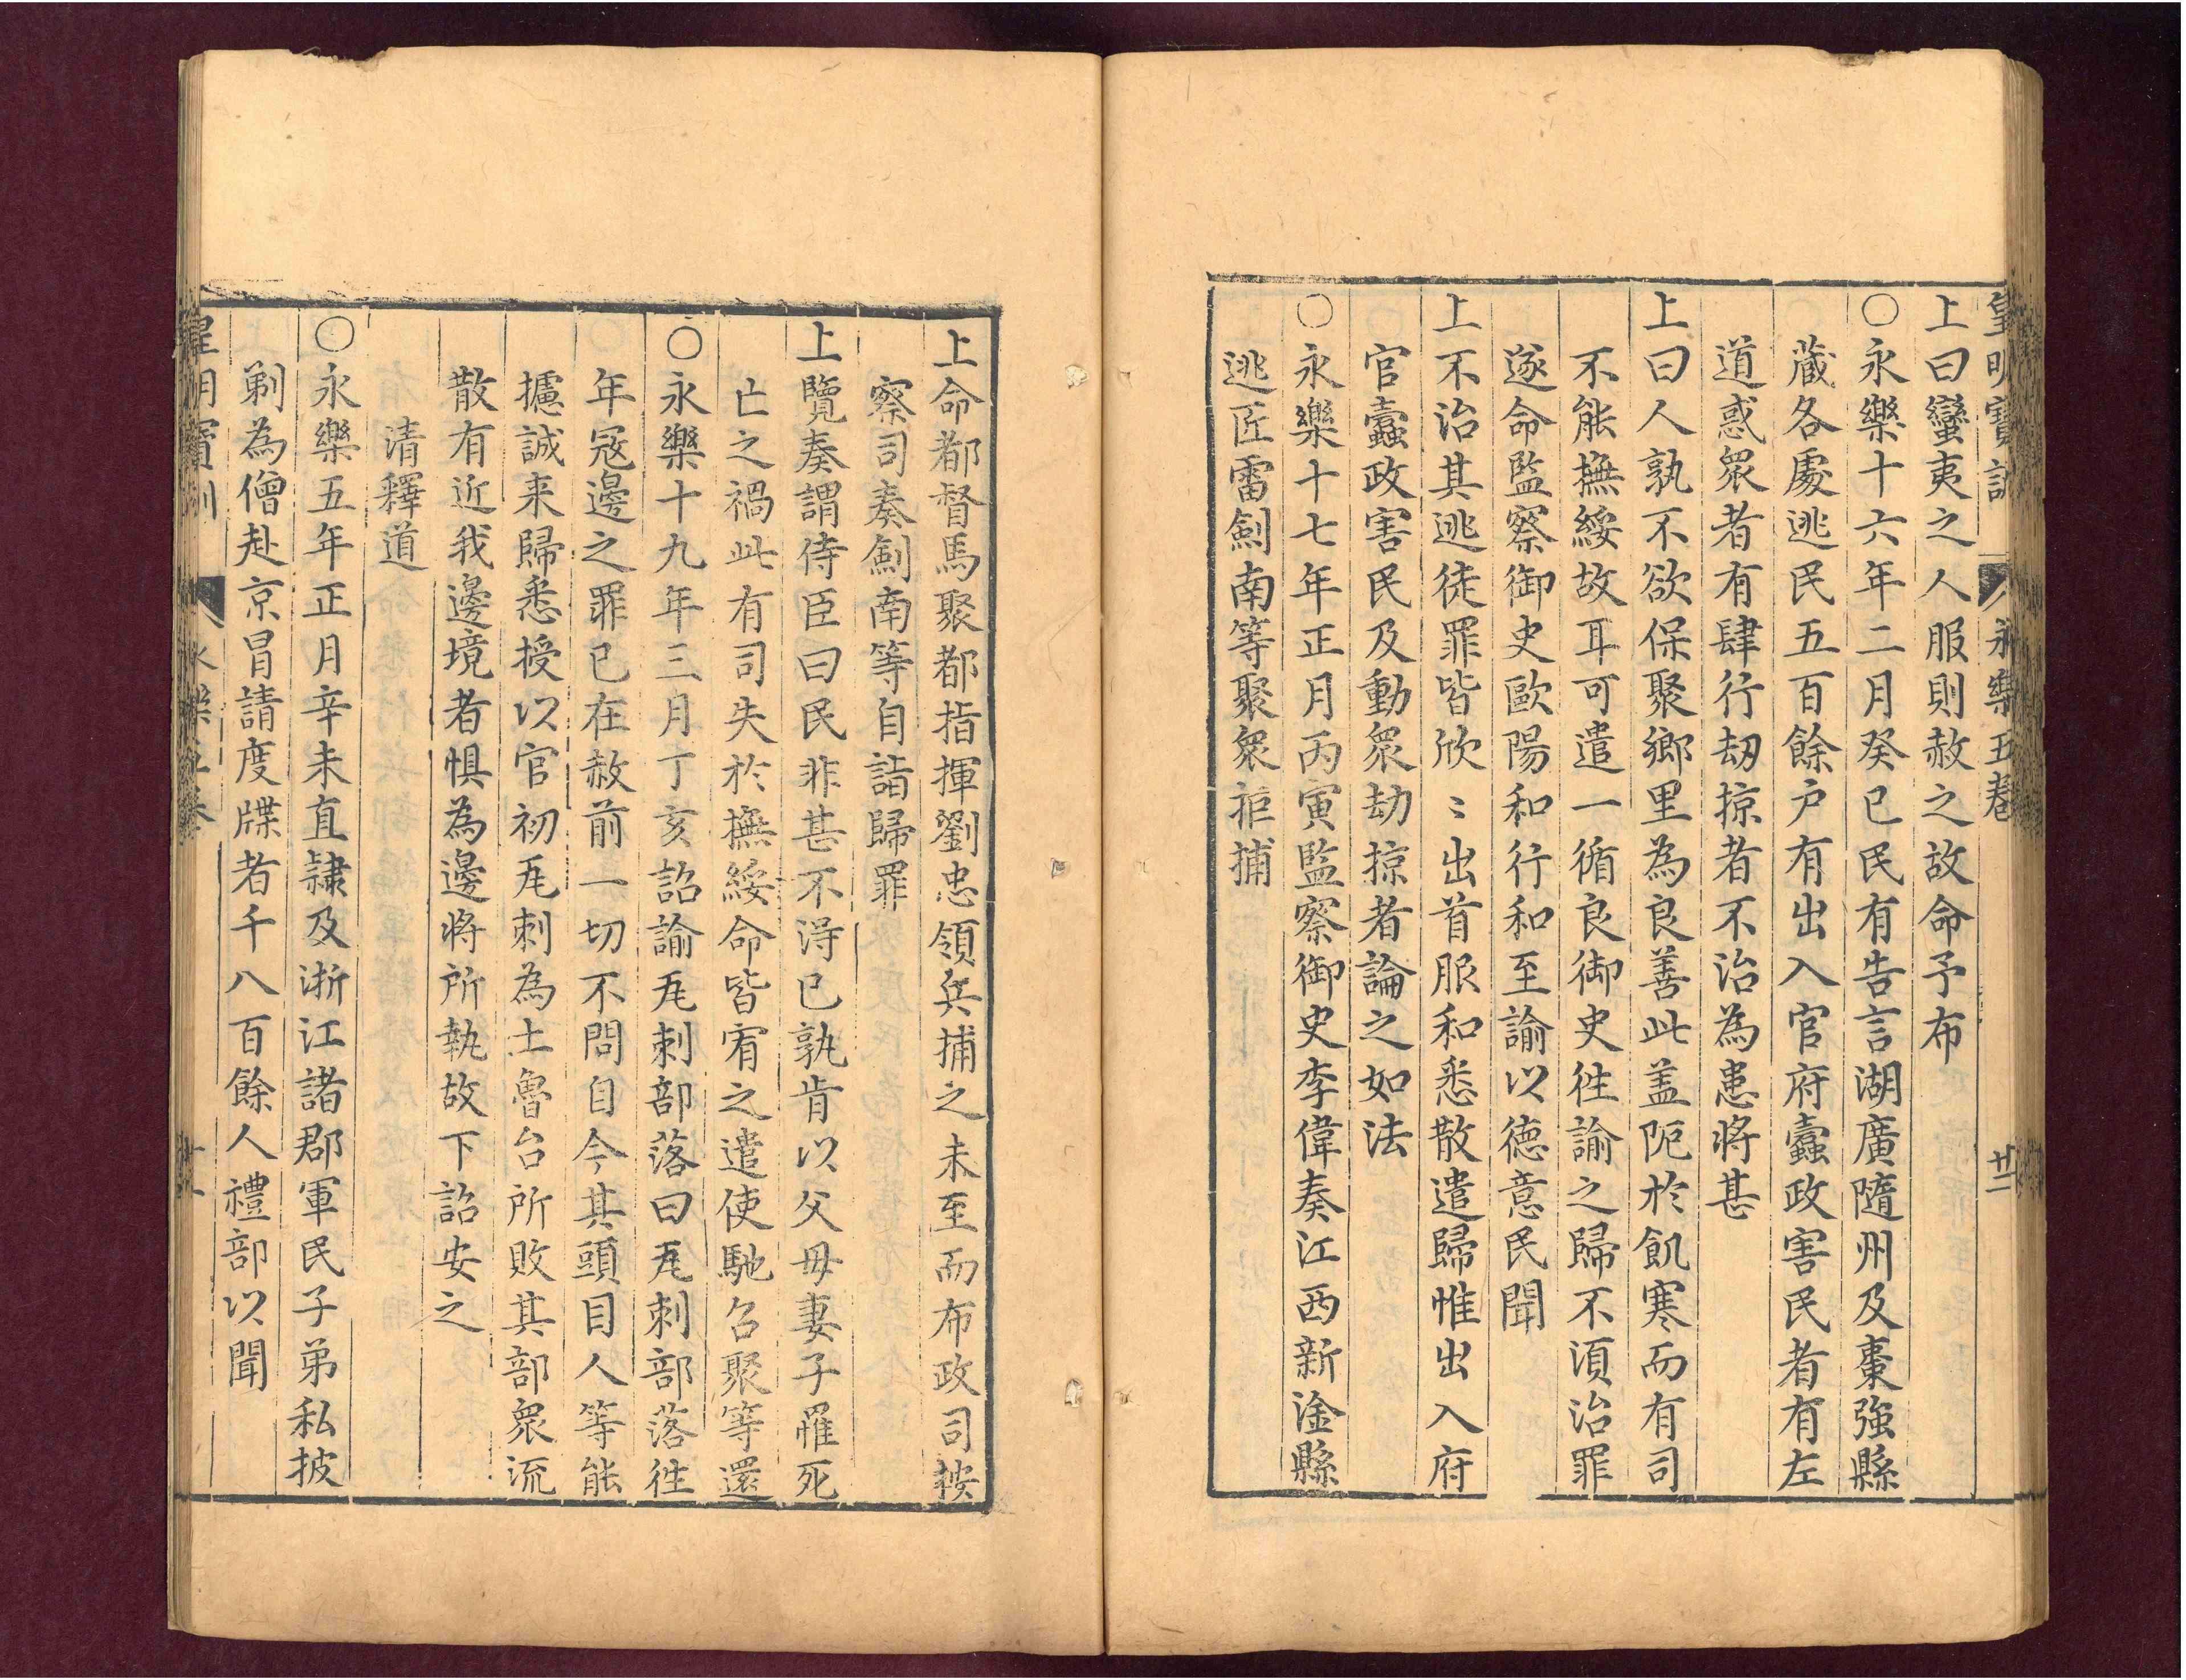 皇明寶訓 永樂五卷 廿二
上曰蠻夷之人服則赦之故命予布
○永樂十六年二月癸巳民有告言湖廣隨州及棗強縣
藏各處逃民五百餘户有出入官府蠹政害民者有左
道惑衆者有肆行刼掠者不治為患將甚
上曰人孰不欲保聚鄉里為良善此盖阨於飢寒而有司
不能撫綏故耳可遣一循良御史徃諭之歸不湏治罪
遂命監察御史歐陽和行和至諭以德意民聞
上不治其逃徒罪皆欣〻出首服和悉散遣歸惟出入府
官蠹政害民及動衆劫掠者論之如法
○永樂十七年正月丙寅監察御史李偉奏江西新淦縣
逃匠雷劍南等聚衆拒捕
上命都督馬聚都指揮劉忠領兵捕之未至而布政司按
察司奏劍南等自詣歸罪
上覽奏謂侍臣曰民非甚不淂已孰肯以父毋妻子罹死
亡之禍此有司失於撫綏命皆宥之遣使馳召聚等還
○永樂十九年三月丁亥詔諭兀剌部落曰兀剌部落徃
年冦邊之罪已在赦前一切不問自今其頭目人等能
攄誠来歸悉授以官初兀刺為土魯台所敗其部衆流
散有近我邊境者惧為邊將所執故下詔安之
清釋道
○永樂五年正月辛未直隸及浙江諸郡軍民子弟私披
剃為僧赴京冒請度牒者千八百餘人禮部以聞
皇明寶訓 永樂五卷